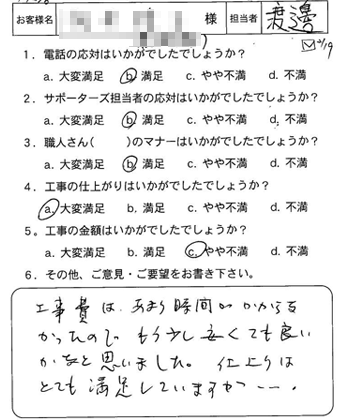 お客様名 様 担当者 渡邊
1．電話の応対はいかがでしたでしょうか？
a. 大変満足 b. 満足 c. やや不満 d. 不満
2．サポーターズ担当者の応対はいかがでしたでしょうか？
a. 大変満足 b. 満足 c. やや不満 d. 不満
3．職人さん（ ）のマナーはいかがでしたでしょうか？
a. 大変満足 b. 満足 c. やや不満 d. 不満
4．工事の仕上がりはいかがでしたでしょうか？
a. 大変満足 b. 満足 c. やや不満 d. 不満
5．工事の金額はいかがでしたでしょうか？
a. 大変満足 b. 満足 c. やや不満 d. 不満
6．その他、ご意見・ご要望をお書き下さい。
工事費は、あまり時間がかからな
かったので もう少し安くても良い
かなと思いました。 仕上りは
とても満足していますが…。